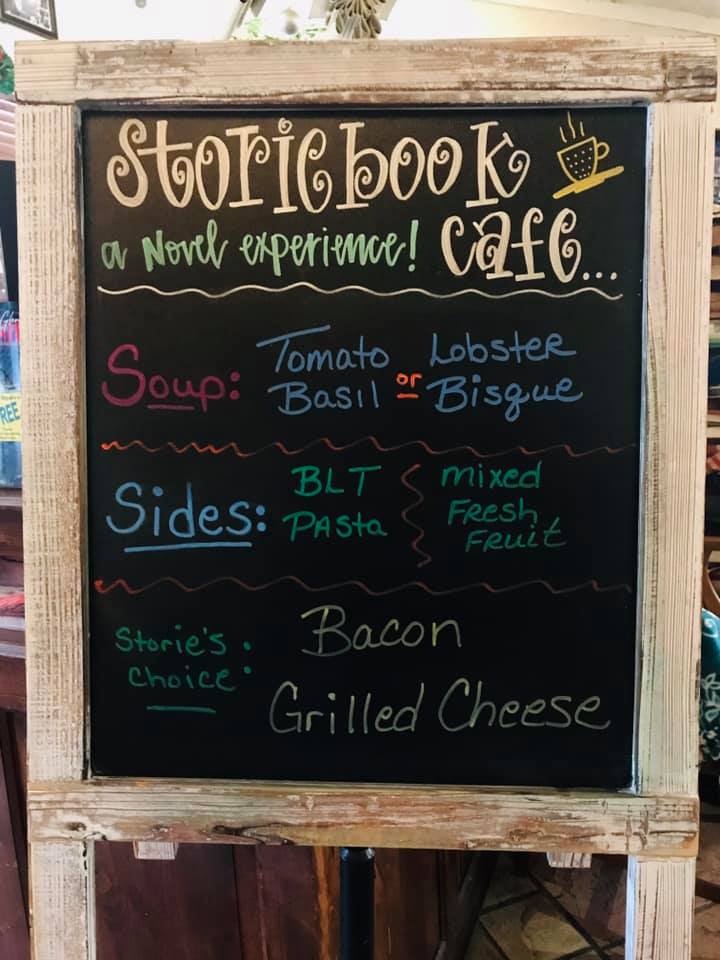 Storiebook
a Novel experience! Cafe...
Soup: Tomato Basil or Lobster Bisque
Sides: BLT Pasta
mixed Fresh Fruit
Storie's Choice: Bacon
Grilled Cheese
FREE